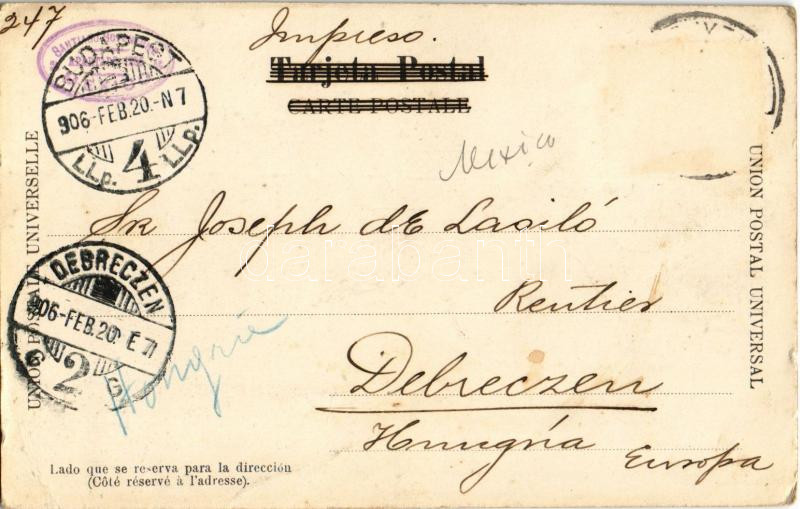 247
Impreso.
Tarjeta Postal
CARTE POSTALE
BUDAPEST
906-FEB.20.-N7
LLp. 4 LLp.
Mexico
UNION POSTALE UNIVERSELLE
UNION POSTAL UNIVERSAL
Sr Joseph de Lasiló
darabanth
DEBRECZEN
906-FEB.20. E 7
2
Rentier
Hongrie
Debreczen
Hungría
Europa
Lado que se reserva para la dirección
(Côté réservé à l'adresse).